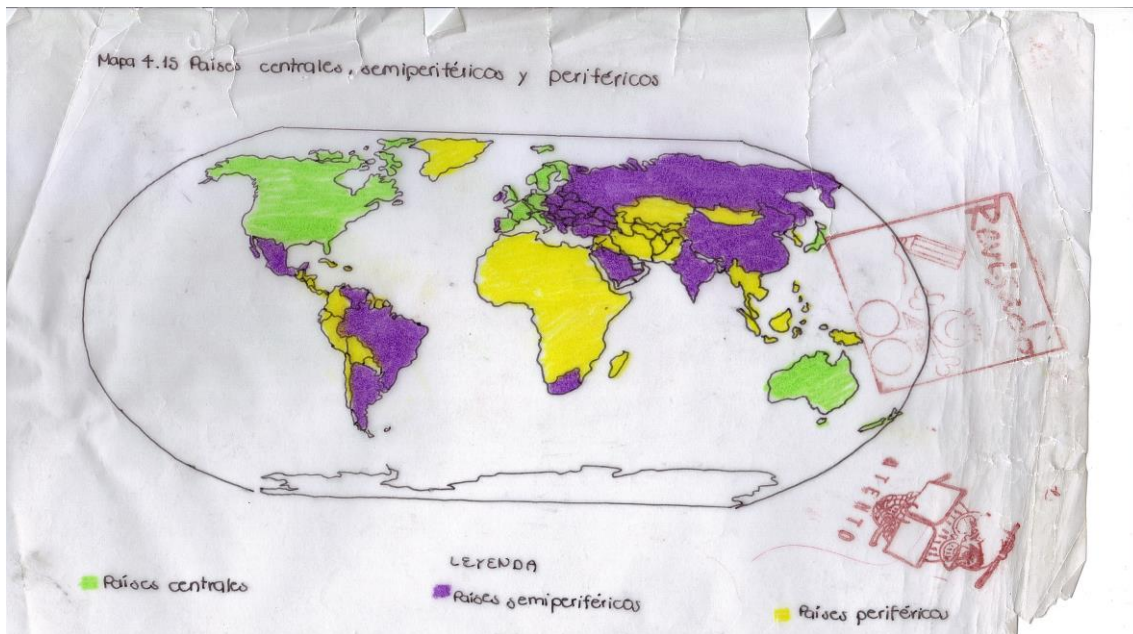 Mapa 4.15 Países centrales, semiperiféricos y periféricos
Revisado
ATENTO
LEYENDA
Países centrales
Países semiperiféricos
Países periféricos